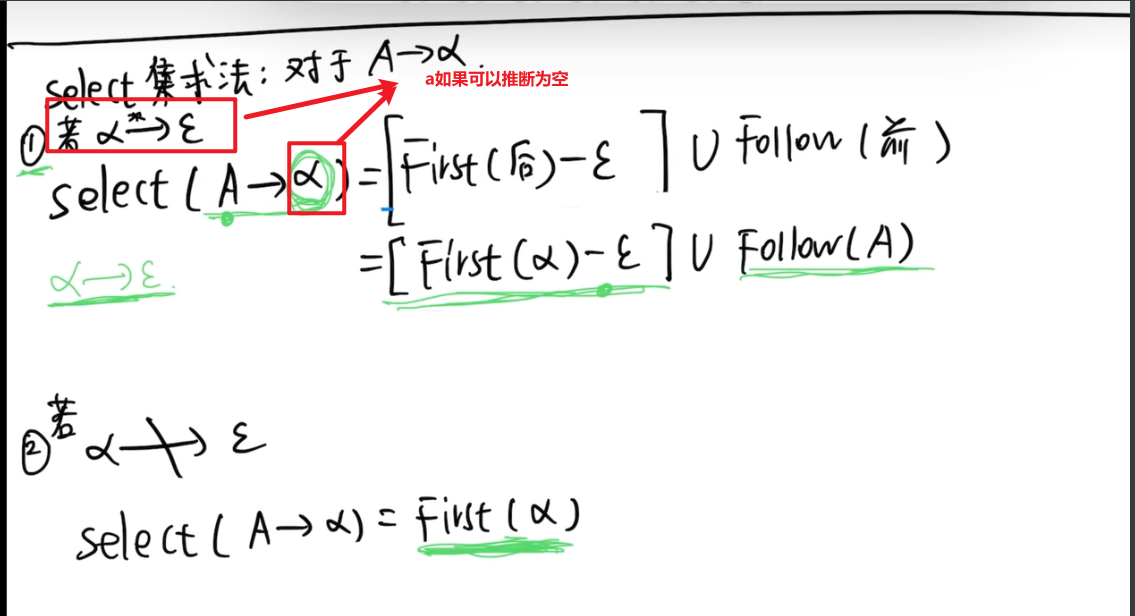 select 集求法：对于 A→α.
a如果可以推断为空
① 若 α *→ ε
select ( A→α ) = [First(后)-ε] ∪ Follow (前)
= [First(α)-ε] ∪ Follow(A)
α→ε.
② 若 α↛ε
select ( A→α) = First (α)